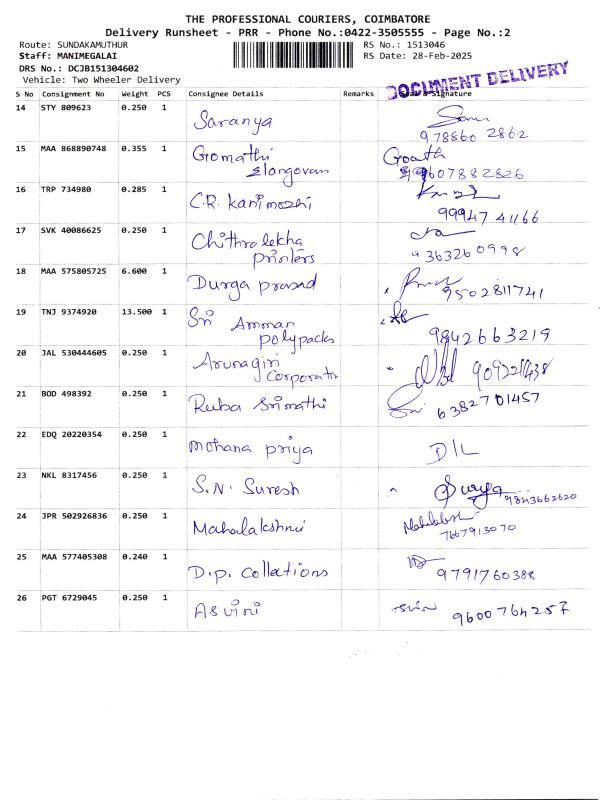 THE PROFESSIONAL COURIERS, COIMBATORE
Delivery Runsheet - PRR - Phone No.:0422-3505555 - Page No.:2
Route: SUNDAKAMUTHUR
RS No.: 1513046
Staff: MANIMEGALAI
RS Date: 28-Feb-2025
DRS No.: DCJB151304602
Vehicle: Two Wheeler Delivery
DOCUMENT DELIVERY
S No Consignment No Weight PCS Consignee Details Remarks Signature
14 STY 809623 0.250 1 Saranya
978860 2862
15 MAA 868890748 0.355 1 Gomathi
Elangovan
9607882826
16 TRP 734980 0.285 1 C.R. Kanimozhi
99947 41166
17 SVK 40086625 0.250 1 Chithralekha
Printers
936326 0998
18 MAA 575805725 6.600 1 Durga prasad
9502811741
19 TNJ 9374920 13.500 1 Sri Amman
polypacks
9842663219
20 JAL 530444605 0.250 1 Arunagiri
Corporatn
21 BOD 498392 0.250 1 Ruba Srimathi
Sri 6382701457
22 EDQ 20220354 0.250 1 Mohana priya D/L
23 NKL 8317456 0.250 1 S.N. Suresh Surya
9843662620
24 JPR 502926836 0.250 1 Mahalakshmi
7667913070
25 MAA 577405308 0.240 1 D.p. Collections
9791760388
26 PGT 6729045 0.250 1 Asvini
9600764257